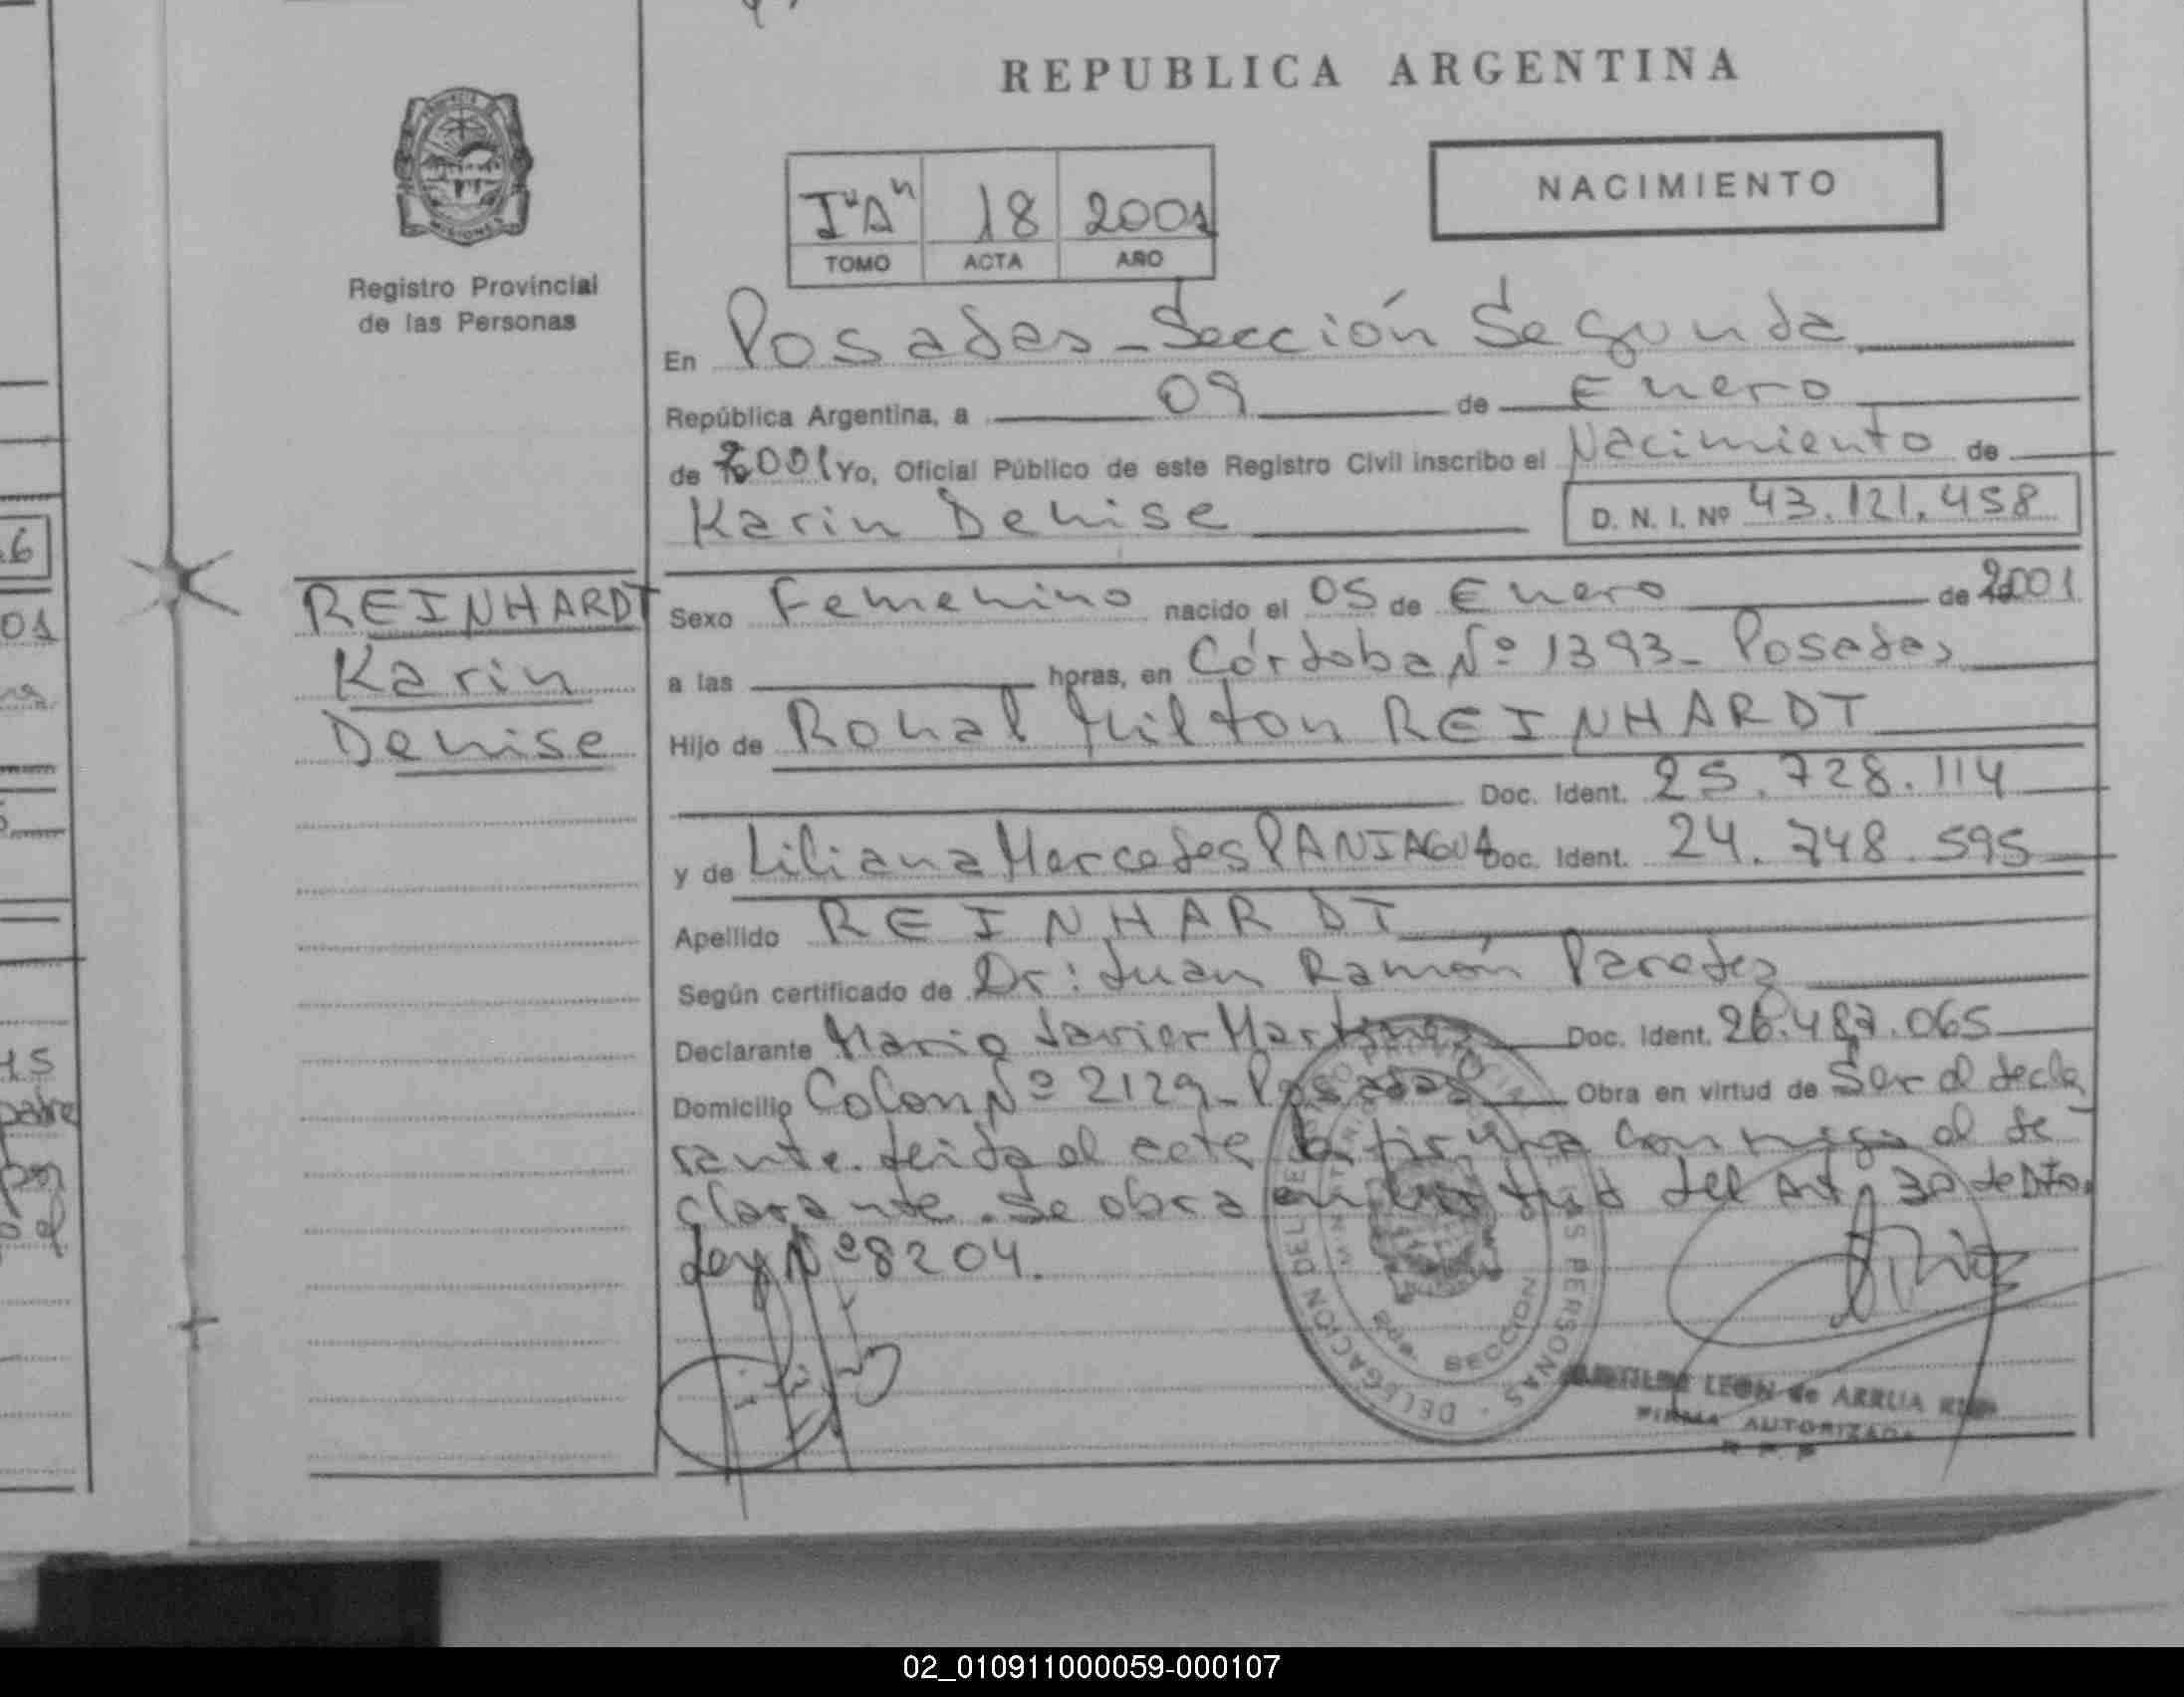 REPUBLICA ARGENTINA
NACIMIENTO
I "A" 18 2001
TOMO ACTA AÑO
Registro Provincial
de las Personas
En Posadas - Sección Segunda
República Argentina, a 09 de Enero
de 2001 Yo, Oficial Público de este Registro Civil inscribo el Nacimiento de
Karin Denise D. N. I. Nº 43.121.458
REINHARDT
Karin
Denise
Sexo Femenino nacido el 05 de Enero de 2001
a las horas, en Córdoba Nº 1393 - Posadas
Hijo de Ronal Milton REINHARDT
Doc. Ident. 25.728.114
y de Liliana Mercedes PANIAGUA Doc. Ident. 24.748.595
Apellido REINHARDT
Según certificado de Dr: Juan Ramón Paredes
Declarante Mario Javier Martinez Doc. Ident. 26.487.065
Domicilio Colon Nº 2129 - Posadas Obra en virtud de Ser el decla
rante. Leida el acta la firma conmigo el de
clarante. Se obra en virtud del Art. 30 de Dto.
Ley Nº 8204.
DELEGACION DEL PERSONAS
SECCION
LEON de ARRUA
FIRMA AUTORIZADA
R. P. P.
16
01
45
padre
por
o el
02_010911000059-000107